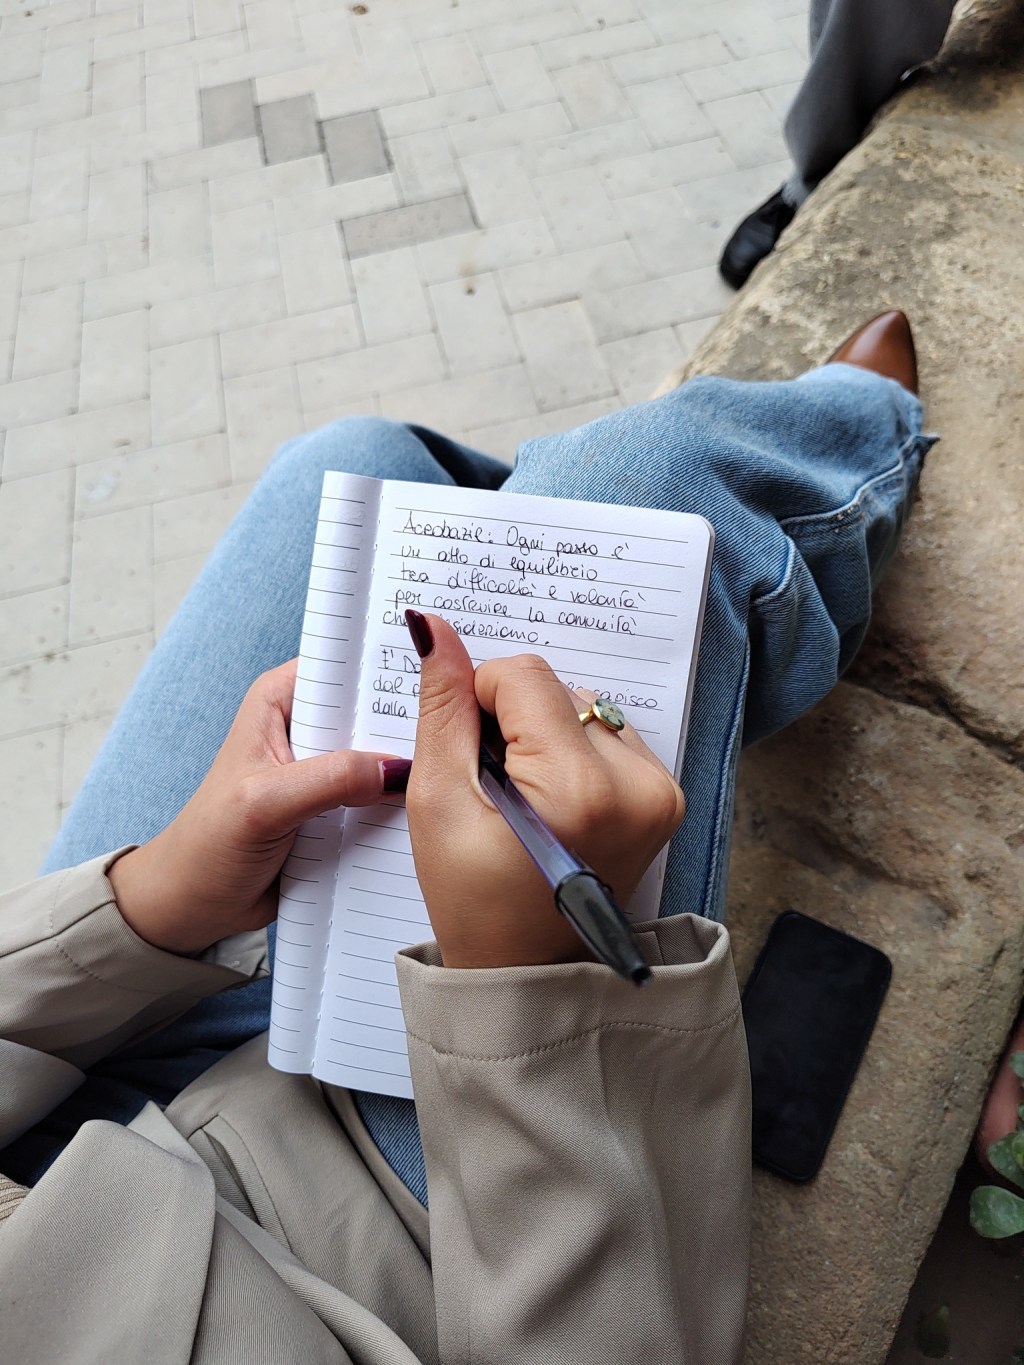 Acrobazie: Ogni passo è
un atto di equilibrio
tra difficoltà e volontà
per costruire la comunità
che desideriamo.
E' Da capisco
dal
dalla